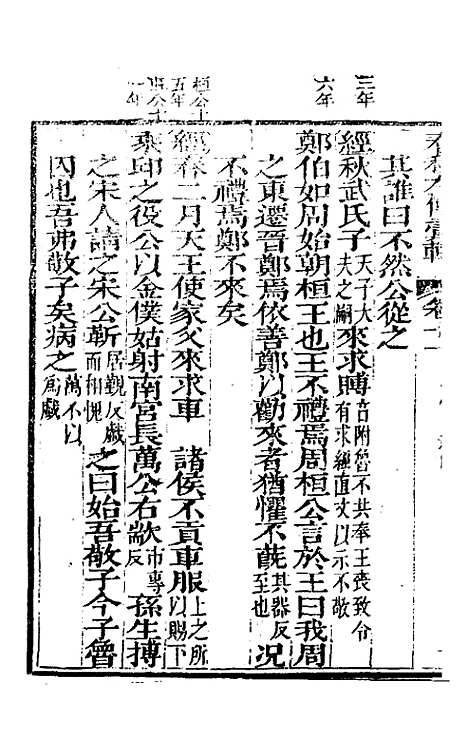 三年
六年
桓公十五年
其誰曰不然公從之
經秋武氏子天子大夫之嗣來求賻音附魯不共奉王喪致令有求經直文以示不敬
鄭伯如周始朝桓王也王不禮焉周桓公言於王曰我周
之東遷晉鄭焉依善鄭以勸來者猶懼不蔇其器反至也況
不禮焉鄭不來矣
經春二月天王使家父來求車 諸侯不貢車服上之所以賜下
乘邱之役公以金僕姑射南宮長萬公右歂市專反孫生搏
之宋人請之宋公靳居覲反戲而相愧之曰始吾敬子今子魯
囚也吾弗敬子矣病之萬不以爲戲